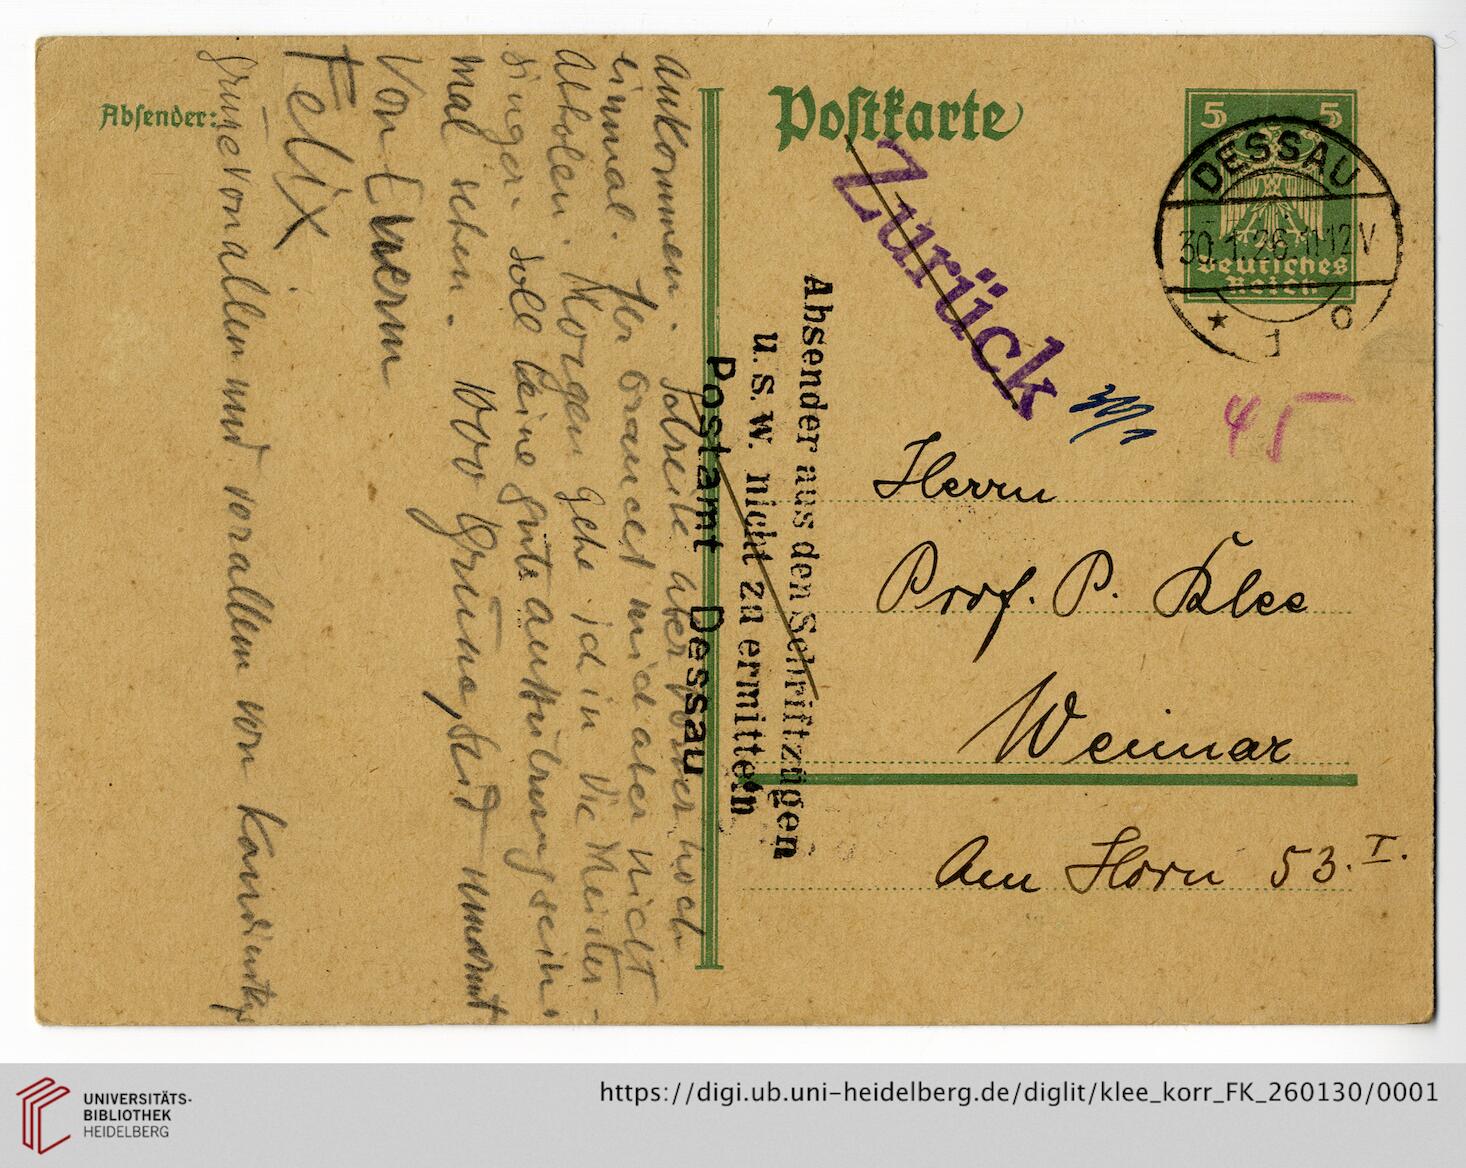 Absender:
Postkarte
5 5
Deutsches
Reich
DESSAU
30.1.26.11-12V
Zurück
Absender aus den Schriftzügen
u. s. w. nicht zu ermitteln
Postamt Dessau
45
Herrn
Prof. P. Klee
Weimar
Am Horn 53. I.
ankommen. Schreibe aber vorher noch
einmal. Ihr braucet mich aber nicht
abholen. Morgen gehe ich in die Meister-
singer. Soll keine gute aufführung sein.
mal sehen. 1000 Grüsse, seid umarmt
von Euerm
Felix
grüsse von allen und vorallem von Kandinskys
UNIVERSITÄTS-
BIBLIOTHEK
HEIDELBERG
https://digi.ub.uni-heidelberg.de/diglit/klee_korr_FK_260130/0001